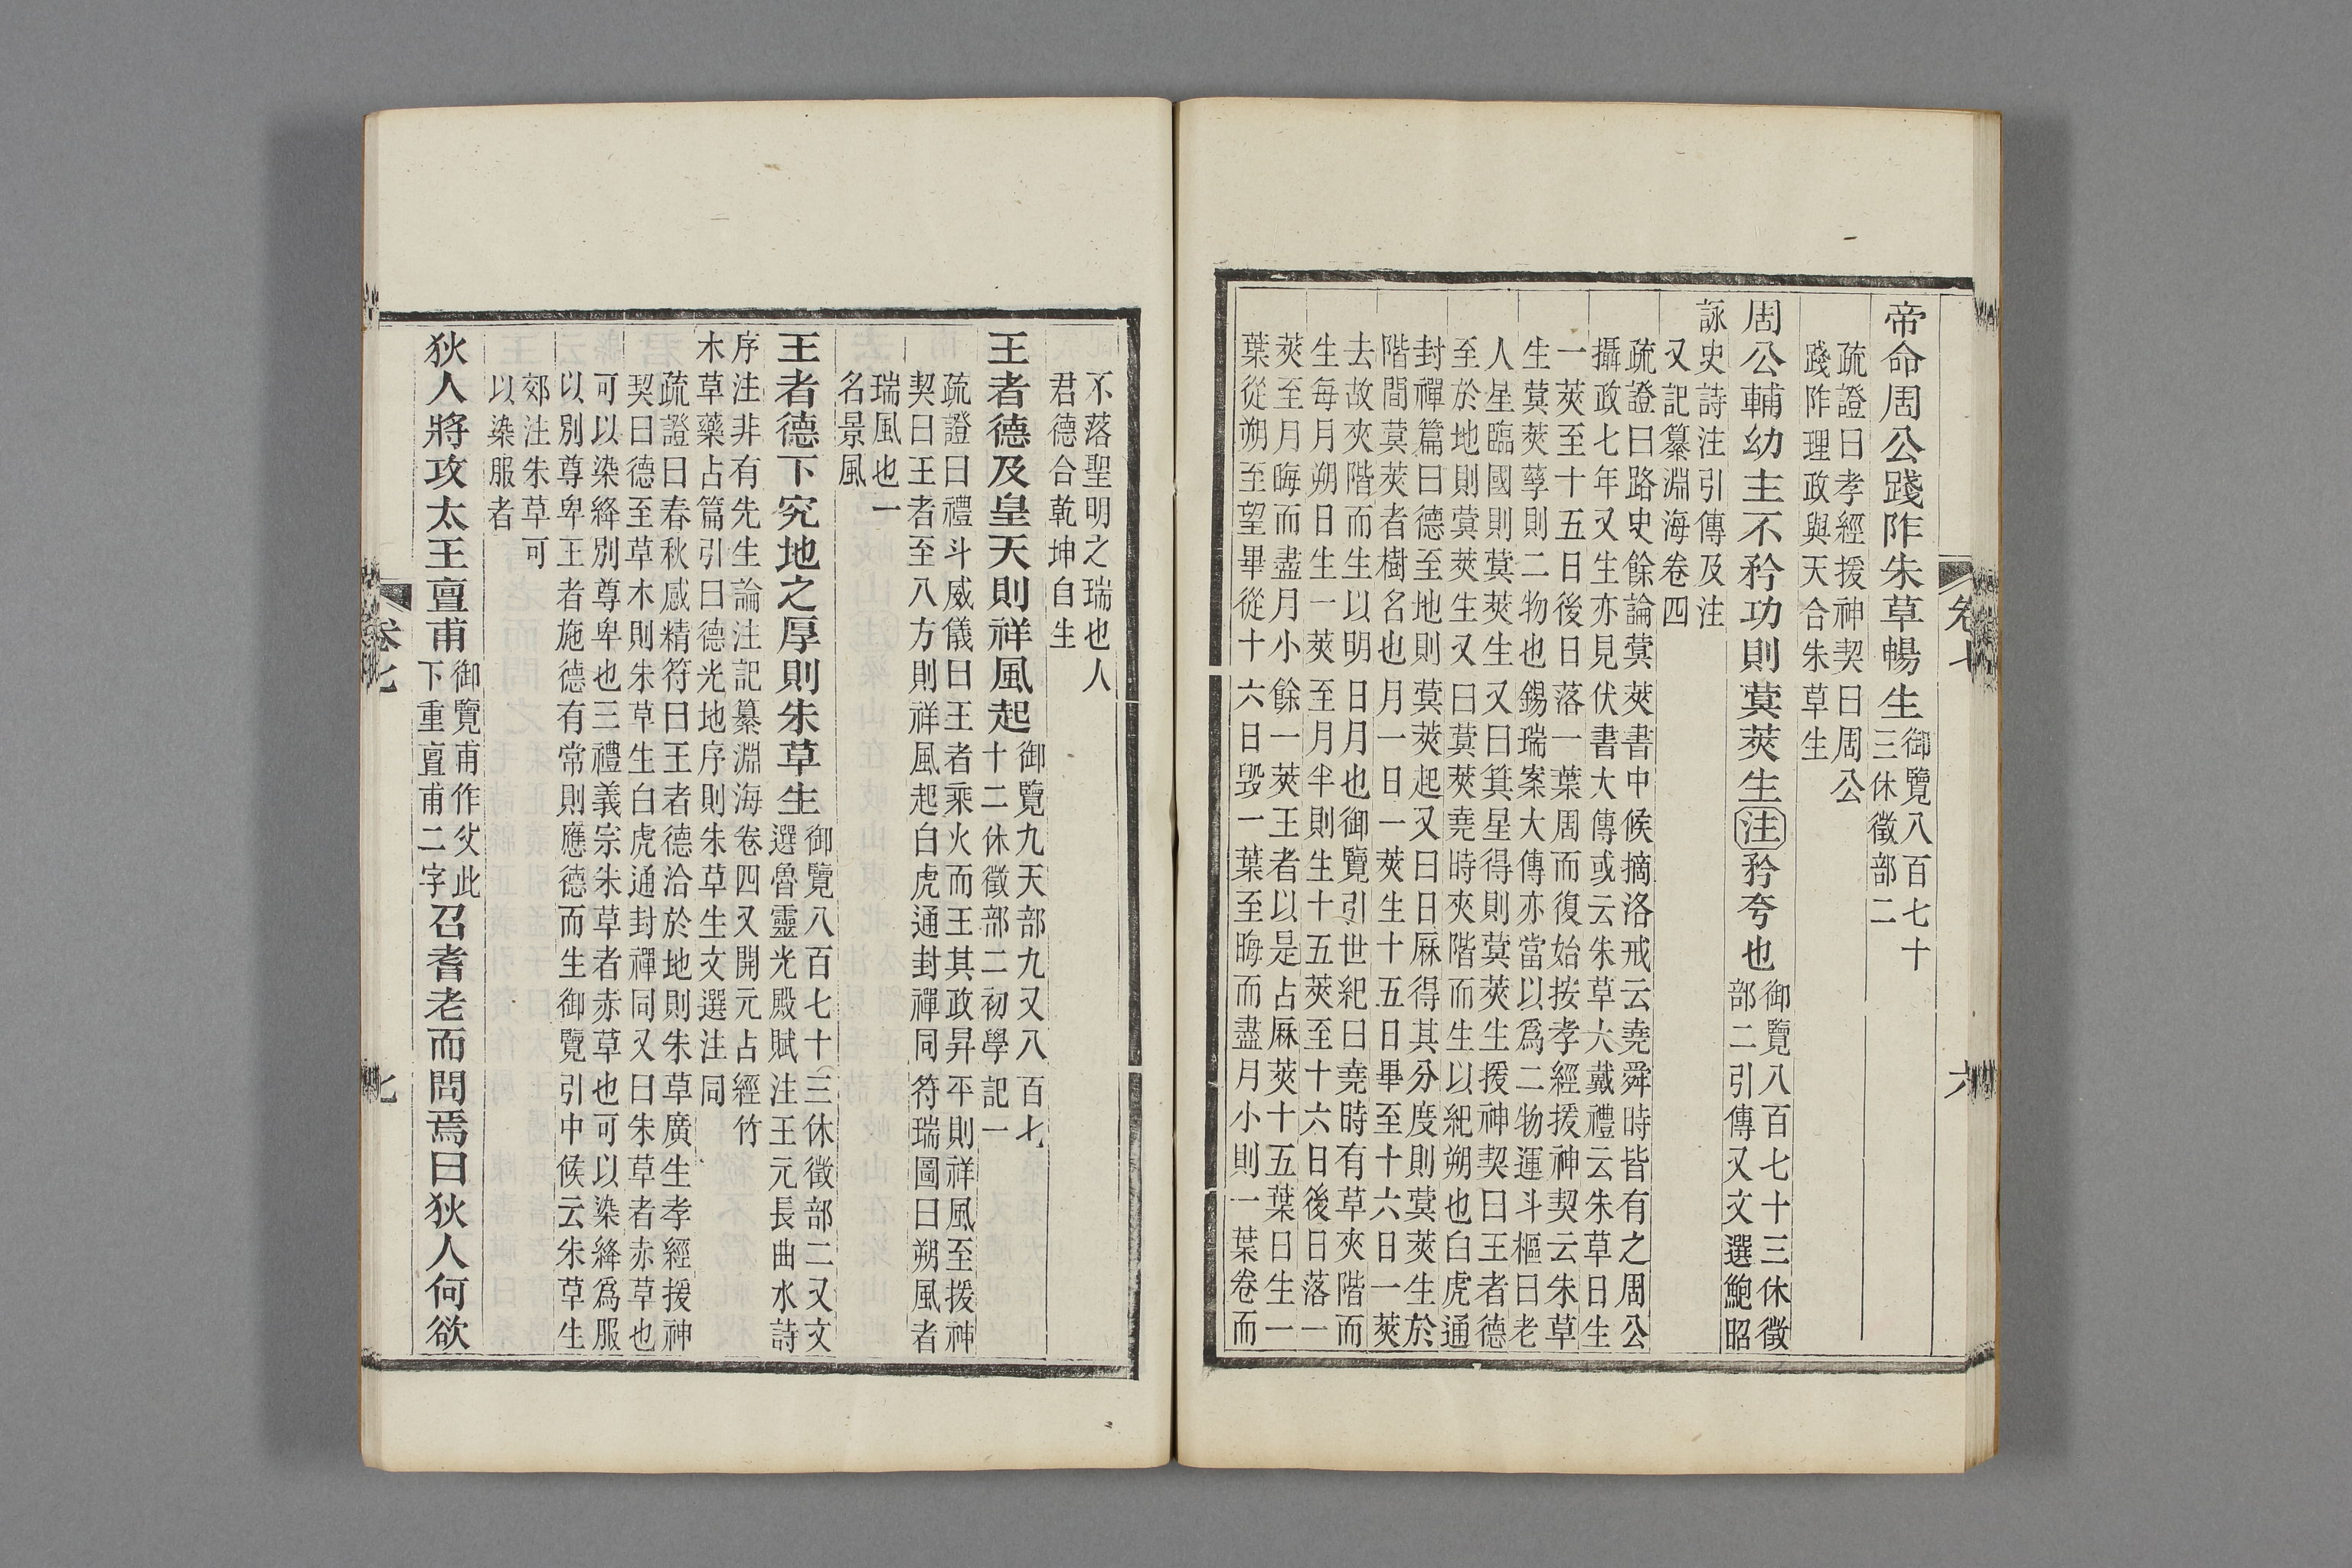 帝命周公踐阼朱草暢生御覽八百七十
三休徵部二
疏證曰孝經援神契曰周公
踐阼理政與天合朱草生
周公輔幼主不矜功則蓂莢生注矜夸也御覽八百七十三休徵
部二引傳又文選鮑昭
詠史詩注引傳及注
又記纂淵海卷四
疏證曰路史餘論蓂莢書中候摘洛戒云堯舜時皆有之周公
攝政七年又生亦見伏書大傳或云朱草大戴禮云朱草日生
一莢至十五日後日落一葉周而復始按孝經援神契云朱草
生蓂莢孳則二物也錫瑞案大傳亦當以爲二物運斗樞曰老
人星臨國則蓂莢生又曰箕星得則蓂莢生援神契曰王者德
至於地則蓂莢生又曰蓂莢堯時夾階而生以紀朔也白虎通
封禪篇曰德至地則蓂莢起又曰日厤得其分度則蓂莢生於
階間蓂莢者樹名也月一日一莢生十五日畢至十六日一莢
去故夾階而生以明日月也御覽引世紀曰堯時有草夾階而
生每月朔日生一莢至月半則生十五莢至十六日後日落一
莢至月晦而盡月小餘一莢王者以是占厤莢十五葉日生一
葉從朔至望畢從十六日毀一葉至晦而盡月小則一葉卷而
卷七
六
不落聖明之瑞也人
君德合乾坤自生
王者德及皇天則祥風起御覽九天部九又八百七
十二休徵部二初學記一
疏證曰禮斗威儀曰王者乘火而王其政昇平則祥風至援神
契曰王者至八方則祥風起白虎通封禪同符瑞圖曰朔風者
瑞風也一
名景風
王者德下究地之厚則朱草生御覽八百七十三休徵部二又文
選魯靈光殿賦注王元長曲水詩
序注非有先生論注記纂淵海卷四又開元占經竹
木草藥占篇引曰德光地序則朱草生文選注同
疏證曰春秋感精符曰王者德洽於地則朱草廣生孝經援神
契曰德至草木則朱草生白虎通封禪同又曰朱草者赤草也
可以染絳別尊卑也三禮義宗朱草者赤草也可以染絳爲服
以別尊卑王者施德有常則應德而生御覽引中候云朱草生
郊注朱草可
以染服者
狄人將攻太王亶甫御覽甫作父此
下重亶甫二字召耆老而問焉曰狄人何欲
卷七
七